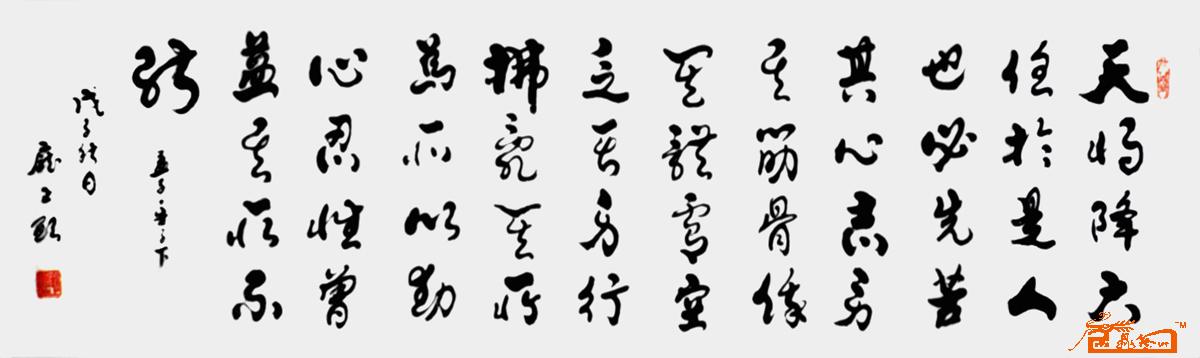 天將降大
任於是人
也必先苦
其心志勞
其筋骨餓
其體膚空
乏其身行
拂亂其所
為所以動
心忍性曾
益其所不
能
孟子·告子下
戊子秋日